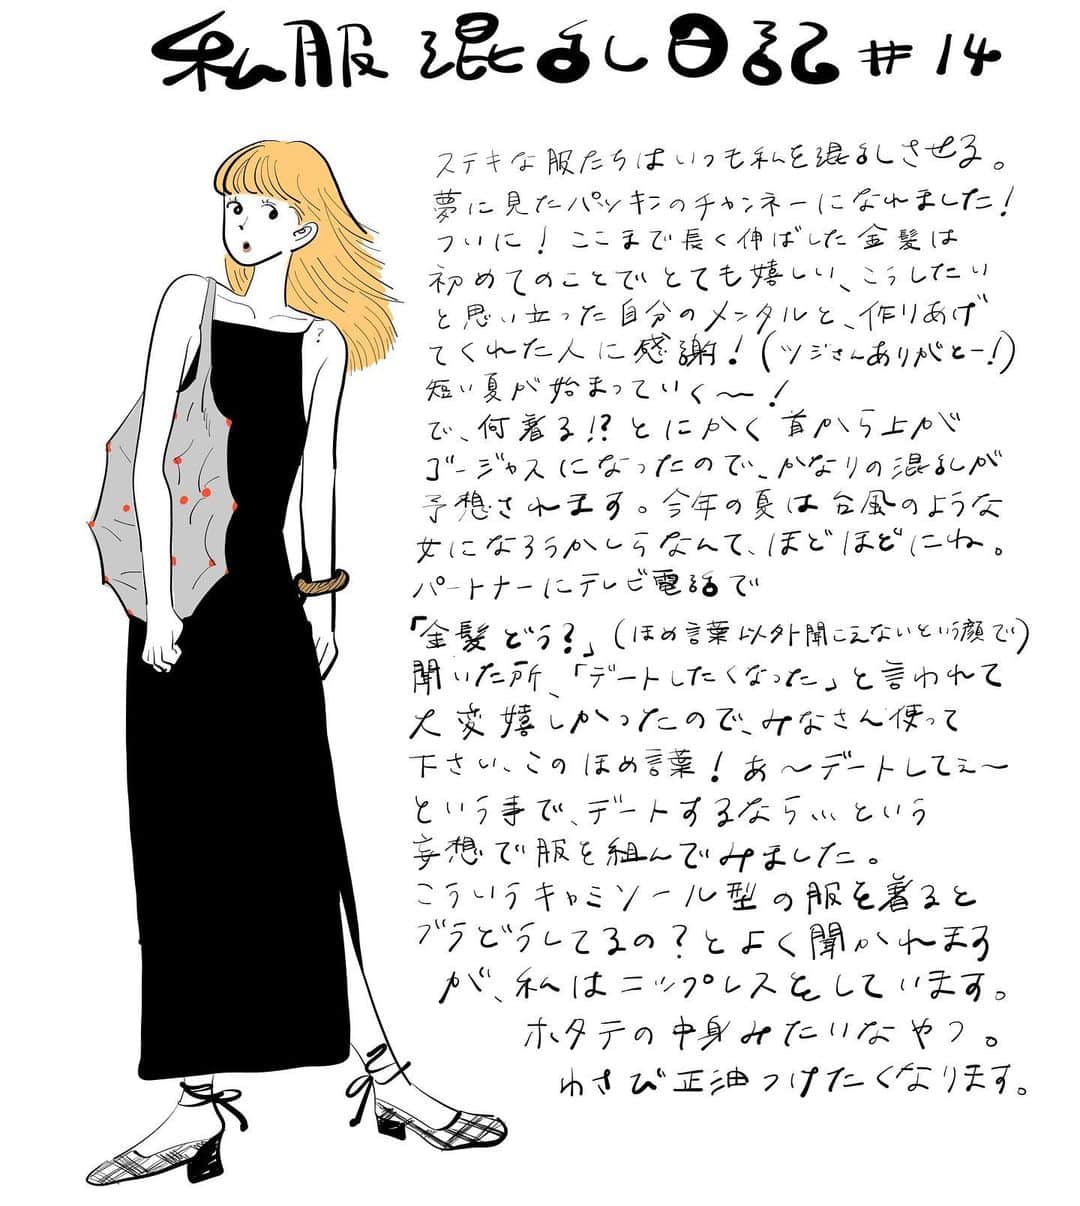 私服混乱日記#14
ステキな服たちはいつも私を混乱させる。
夢に見たパッキンのチャンネーになれました!
ついに!ここまで長く伸ばした金髪は
初めてのことでとても嬉しい、こうしたい
と思い立った自分のメンタルと、作りあげ
てくれた人に感謝!(ツジさんありがとー!)
短い夏が始まっていく〜!
で、何着る!?とにかく首から上が
ゴージャスになったので、かなりの混乱が
予想されます。今年の夏は台風のような
女になろうかしらなんて、ほどほどにね。
パートナーにテレビ電話で
「金髪どう?」(ほめ言葉以外聞こえないという顔で)
聞いた所、「デートしたくなった」と言われて
大変嬉しかったので、みなさん使って
下さい、このほめ言葉!あ〜デートしてぇ〜
という事で、デートするなら…という
妄想で服を組んでみました。
こういうキャミソール型の服を着ると
ブラどうしてるの?とよく聞かれます
が、私はニップレスをしています。
ホタテの中身みたいなやつ。
わさび正油つけたくなります。